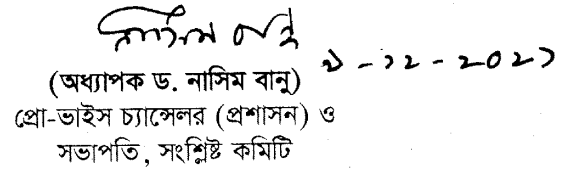 (অধ্যাপক ড. নাসিম বানু)
প্রো-ভাইস চ্যান্সেলর (প্রশাসন) ও
সভাপতি, সংশ্লিষ্ট কমিটি